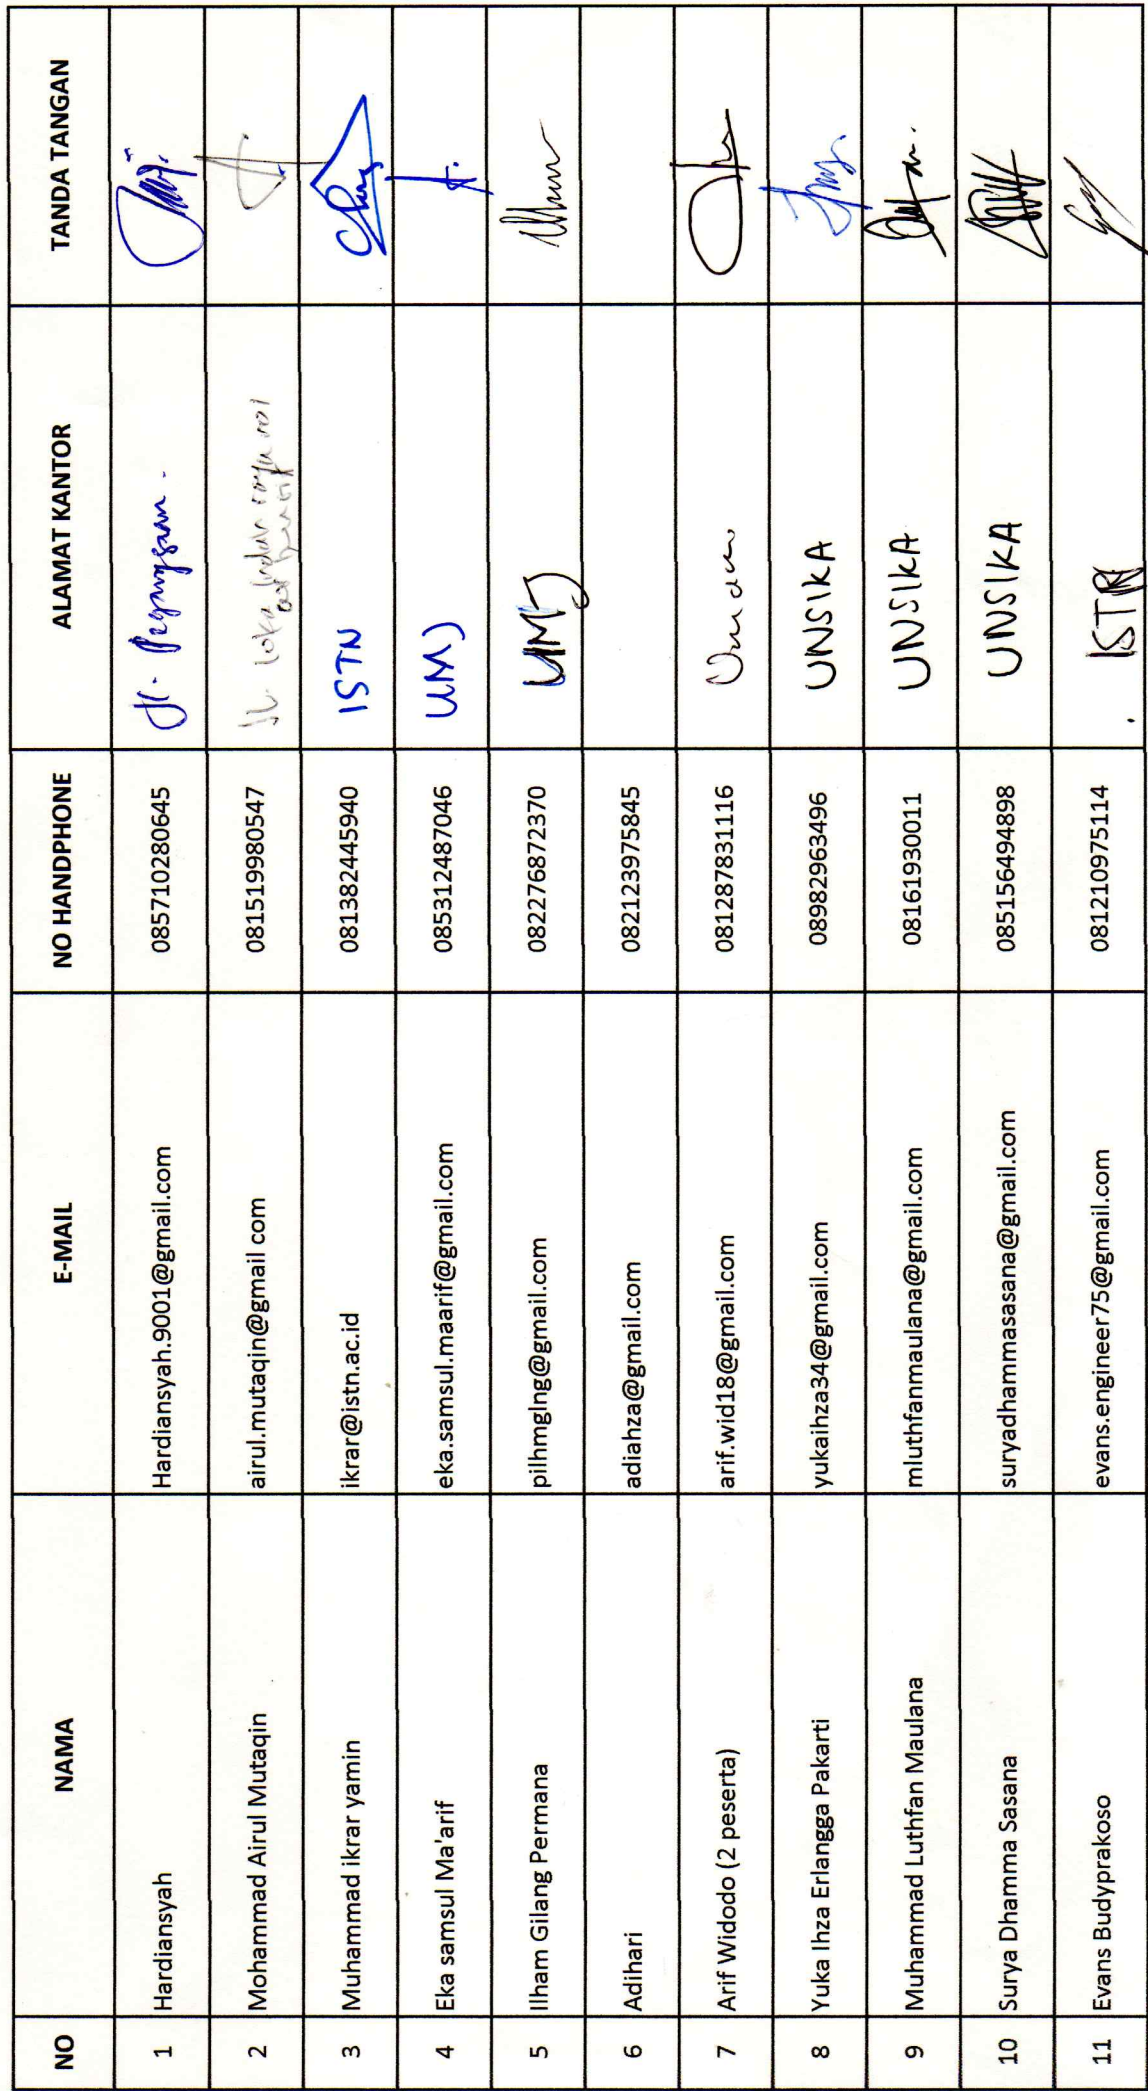 NO NAMA E-MAIL NO HANDPHONE ALAMAT KANTOR TANDA TANGAN
1 Hardiansyah Hardiansyah.9001@gmail.com 085710280645 Jl. Pegangsaan.
2 Mohammad Airul Mutaqin airul.mutaqin@gmail com 081519980547
3 Muhammad ikrar yamin ikrar@istn.ac.id 081382445940 ISTN
4 Eka samsul Ma'arif eka.samsul.maarif@gmail.com 085312487046 UMJ
5 Ilham Gilang Permana pilhmglng@gmail.com 082276872370 UMJ
6 Adihari adiahza@gmail.com 082123975845
7 Arif Widodo (2 peserta) arif.wid18@gmail.com 081287831116
8 Yuka Ihza Erlangga Pakarti yukaihza34@gmail.com 08982963496 UNSIKA
9 Muhammad Luthfan Maulana mluthfanmaulana@gmail.com 08161930011 UNSIKA
10 Surya Dhamma Sasana suryadhammasasana@gmail.com 085156494898 UNSIKA
11 Evans Budyprakoso evans.engineer75@gmail.com 081210975114 ISTN